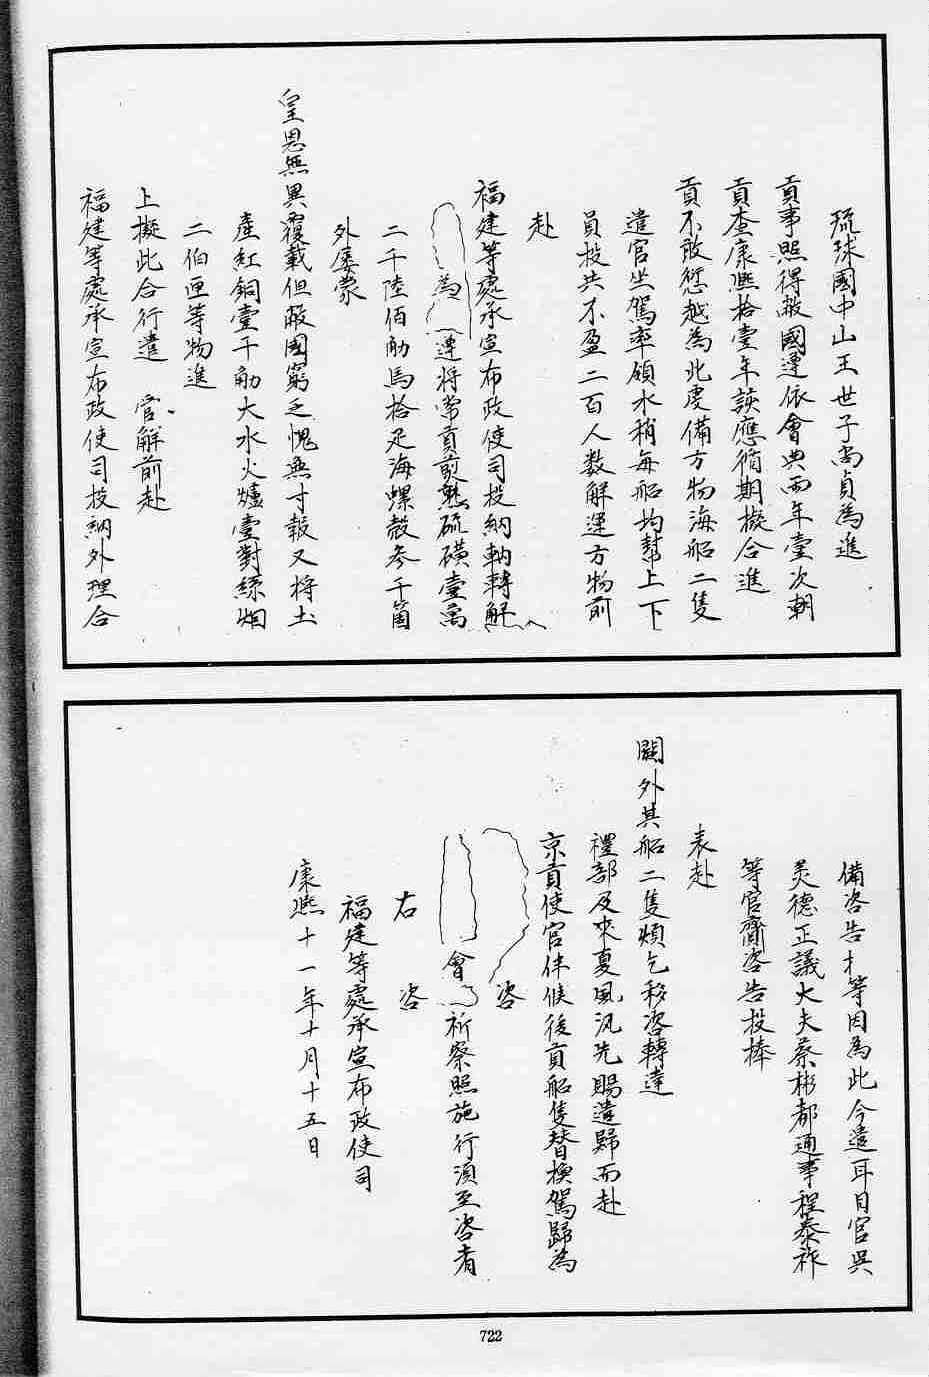 琉球國中山王世子尚貞為進
貢事照得敝國遵依會典兩年壹次朝
貢查康熙拾壹年該應循期擬合進
貢不敢愆越為此虔備方物海船二隻
遣官坐駕率領水梢每船均幫上下
員役共不盈二百人數解運方物前
赴
福建等處承宣布政使司投納轉解
為 遵將常貢煎熟硫磺壹萬
二千陸伯觔馬拾疋海螺殼參千箇
外屢蒙
皇恩無異覆載但敝國窮乏愧無寸報又將土
產紅銅壹千觔大水火爐壹對絲烟
二伯匣等物進
上擬此合行遣 官解前赴
福建等處承宣布政使司投納外理合
備咨告 等因為此今遣耳目官吳
美德正議大夫蔡彬都通事程泰祚
等官齎咨告投捧
表赴
闕外其船二隻煩乞移咨轉達
禮部及來夏風汛先賜遣歸而赴
京貢使官伴候後貢船隻替換駕歸為
咨
會 祈察照施行須至咨者
右 咨
福建等處承宣布政使司
康熙十一年十月十五日
722